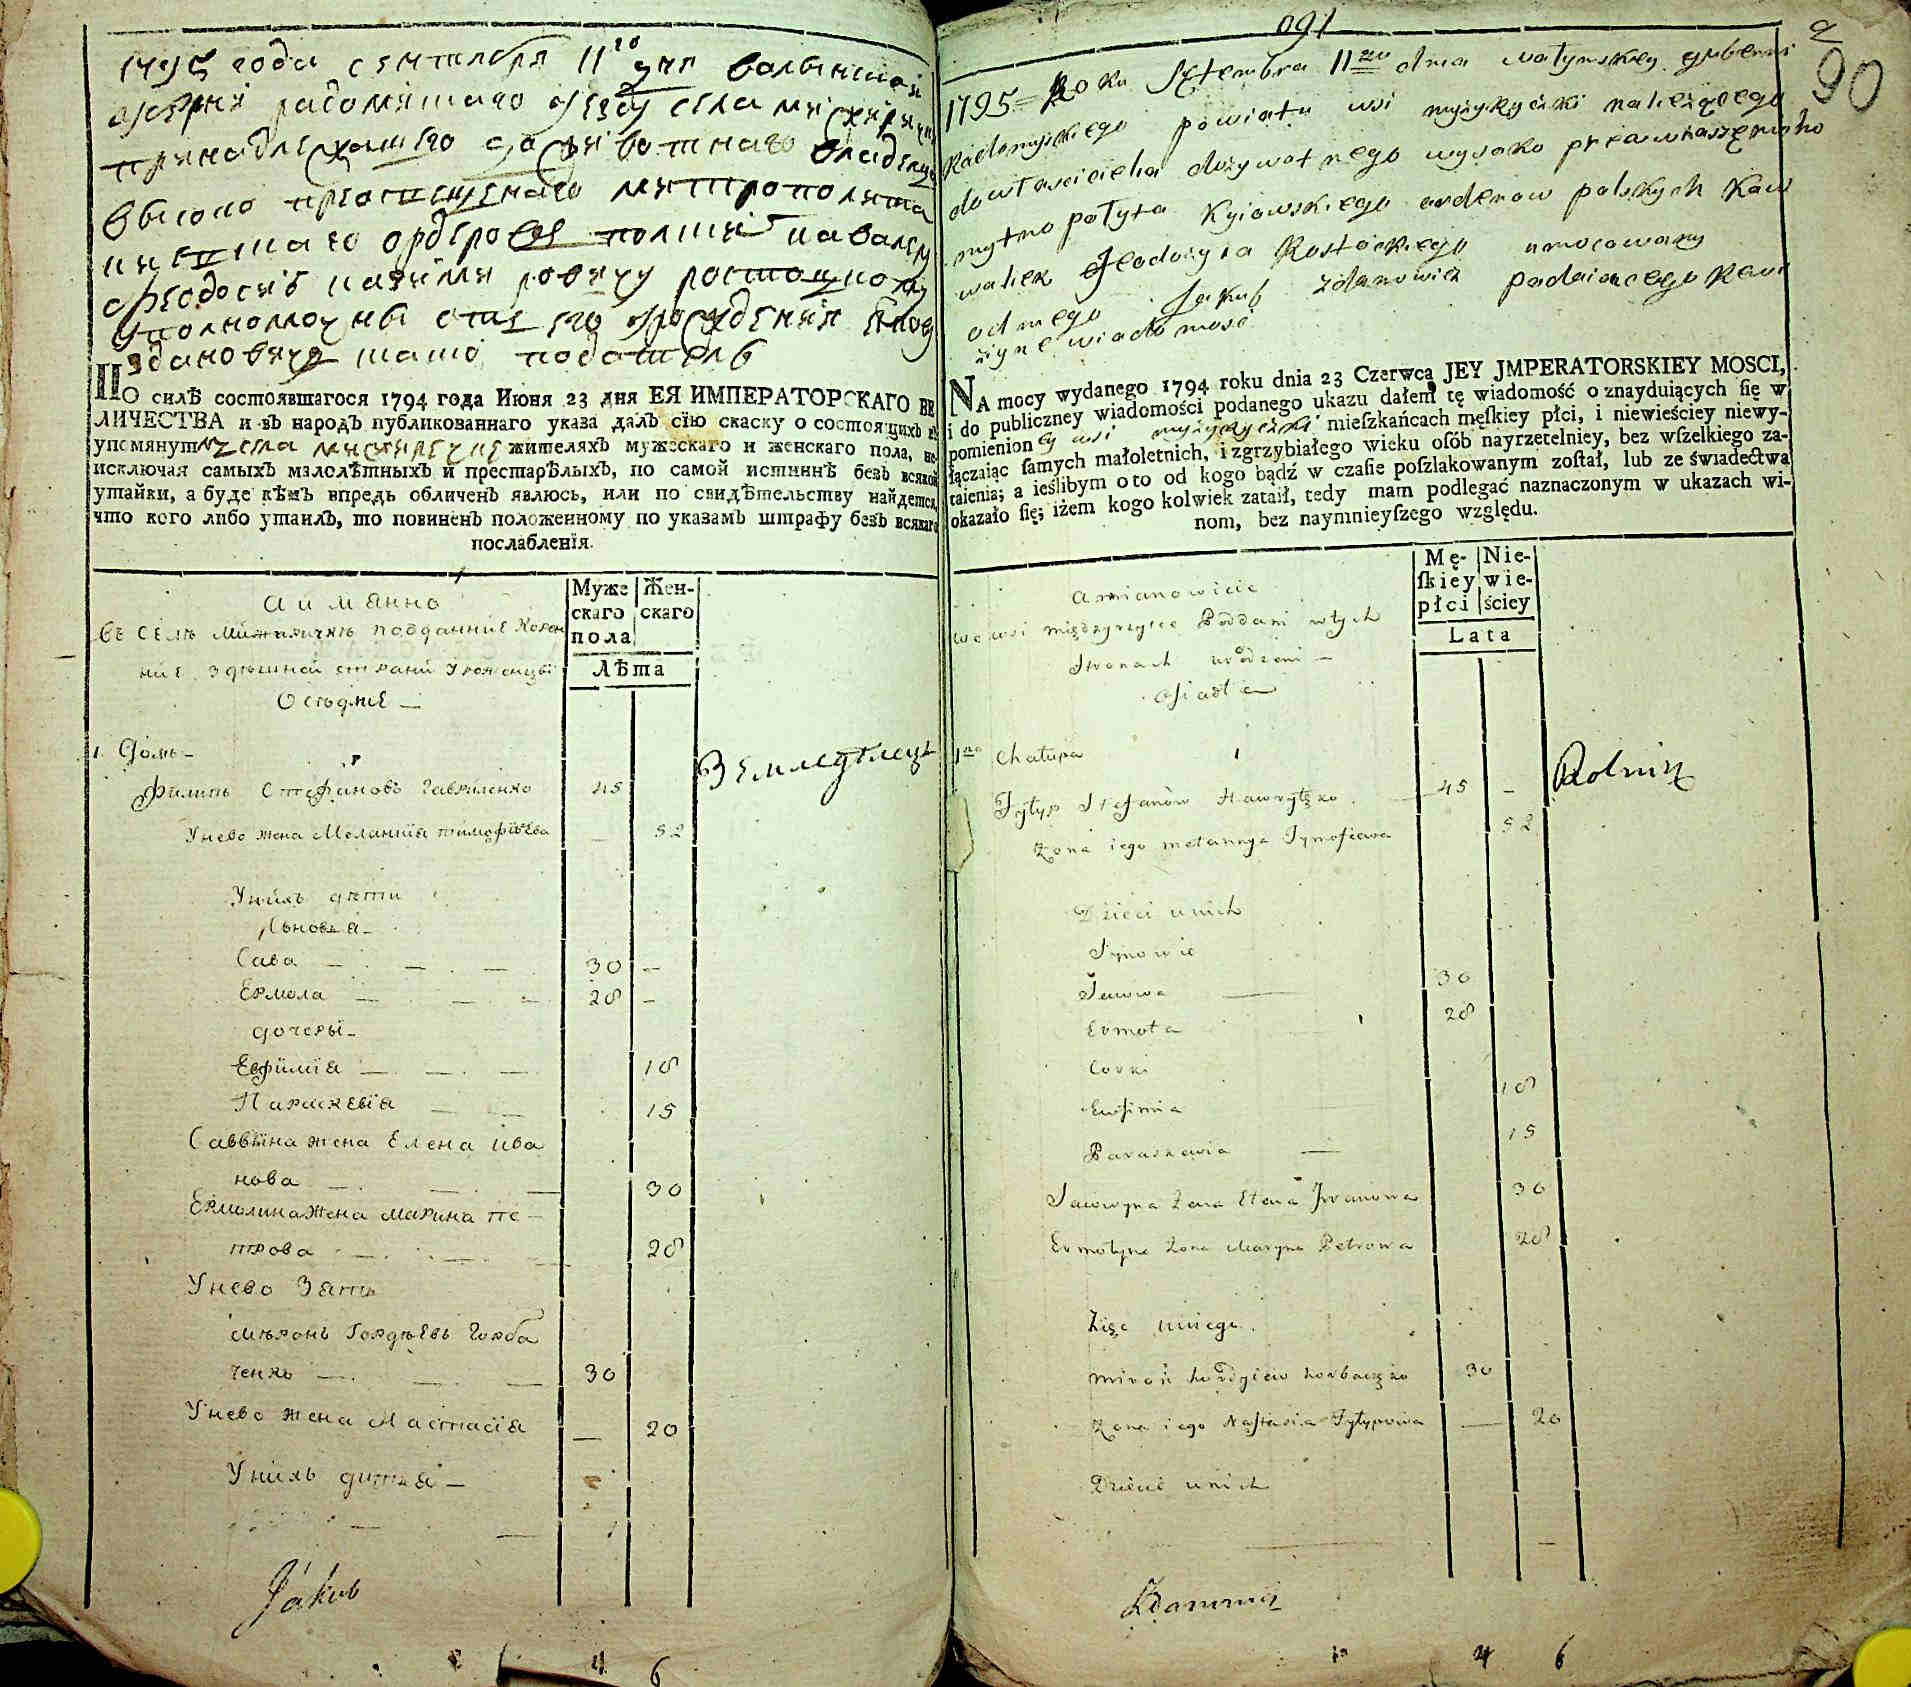 1795 года сентебря 11го дня волынской
губерни радомишлскаго уезду села мижирички
принадлежащего дожывотнаго владелца
высоко преосвещенаго митрополита
киевскаго ордеров полских кавалера
феодосия ростоцкого
уполномочены от его
Здановичъ
По силѣ состоявшагося 1794 года Июня 23 дня ЕЯ ИМПЕРАТОРСКАГО ВЕ
ЛИЧЕСТВА и въ народъ публикованнаго указа далъ сїю скаску о состоящихъ въ
упомянутом села мижиречки жителяхъ мужескаго и женскаго пола, не
исключая самыхъ малолѣтныхъ и престарѣлыхъ, по самой истиннѣ безъ всякой
утайки, а буде кѣмъ впредь обличенъ явлюсь, или по свидѣтельству найдется,
что кого либо утаилъ, то повиненъ положенному по указамъ штрафу безъ всякаго
послабленїя.
А и мянно
въ селѣ Мижиричкѣ подданние
здѣшной страни уроженцы
Оседлие —
Муже
скаго
пола
Жен-
скаго
Лѣта
1. Домъ —
Филипъ Стефановъ Гавриленко 45
Землѣделецъ
У нево жена Меланнїя Тимофѣева — 52
У нихъ дети
Сыновья —
Сава — 30 —
Ермола — 28 —
дочеры —
Евфимия — 18
Параскевїя 15
Саввына жена Елена ива
нова — 30
Ермолина жена Марина Пе-
трова — 28
У нево Зять
Мѣронъ Гордѣевъ Горба
ченко — 30
У нево жена Настасїя — 20
У нихъ дитей —
Jakub
4 6
091
2
90
1795 Roku Septembra 11go dnia wołynskiey guberni
Radomyskiego powiatu wsi myzyryczki należącego
do własciciela dożywotnego wysoko przewiaszczęnoho
mytropolyta Kyiowskiego orderow polskych Kaw
waliera Feodozyia Rostockiego umocowany
od niego Jakub Zdanowicz podaiacego
wiadomosc
NA mocy wydanego 1794 roku dnia 23 Czerwca JEY JMPERATORSKIEY MOSCI,
i do publiczney wiadomości podanego ukazu dałem tę wiadomość o znayduiących ſię w
pomienioney wsi myzyryczki mieſzkańcach męſkiey płci, i niewieściey niewy-
łączaiąc ſamych małoletnich, i zgrzybiałego wieku oſób nayrzetelniey, bez wſzelkiego za-
taienia; a ieślibym oto od kogo bądź w czaſie poſzlakowanym zoſtał, lub ze świadectwa
okazało ſię; iżem kogo kolwiek zataił, tedy mam podlegać naznaczonym w ukazach wi-
nom, bez naymnieyſzego względu.
Amianowicie
we wsi międzyrzyice Poddani wtych
Stronach urodzeni —
osiadłe
Mę-
ſkiey
płci
Nie-
wie-
ściey
Lata
1no Chałupa 1
Fylyp Stefanów Hawrylęko 45 —
Rolnik
Zona iego Melannya Tymofiewa 52
Dzieci unich
Synowie
Sawwa — 30
Ermoła 28
Corki
Eufimia 18
Paraskewia — 15
Sawwyna Zona Elena Jwanowa 30
Ermołyna Zona Maryna Petrowa 28
Zięc uniego
Miron hordyiew horbaczęko 30
Zona iego Nastasia Fylypowa — 20
Dzieci unich
Zdanowicz
4 6